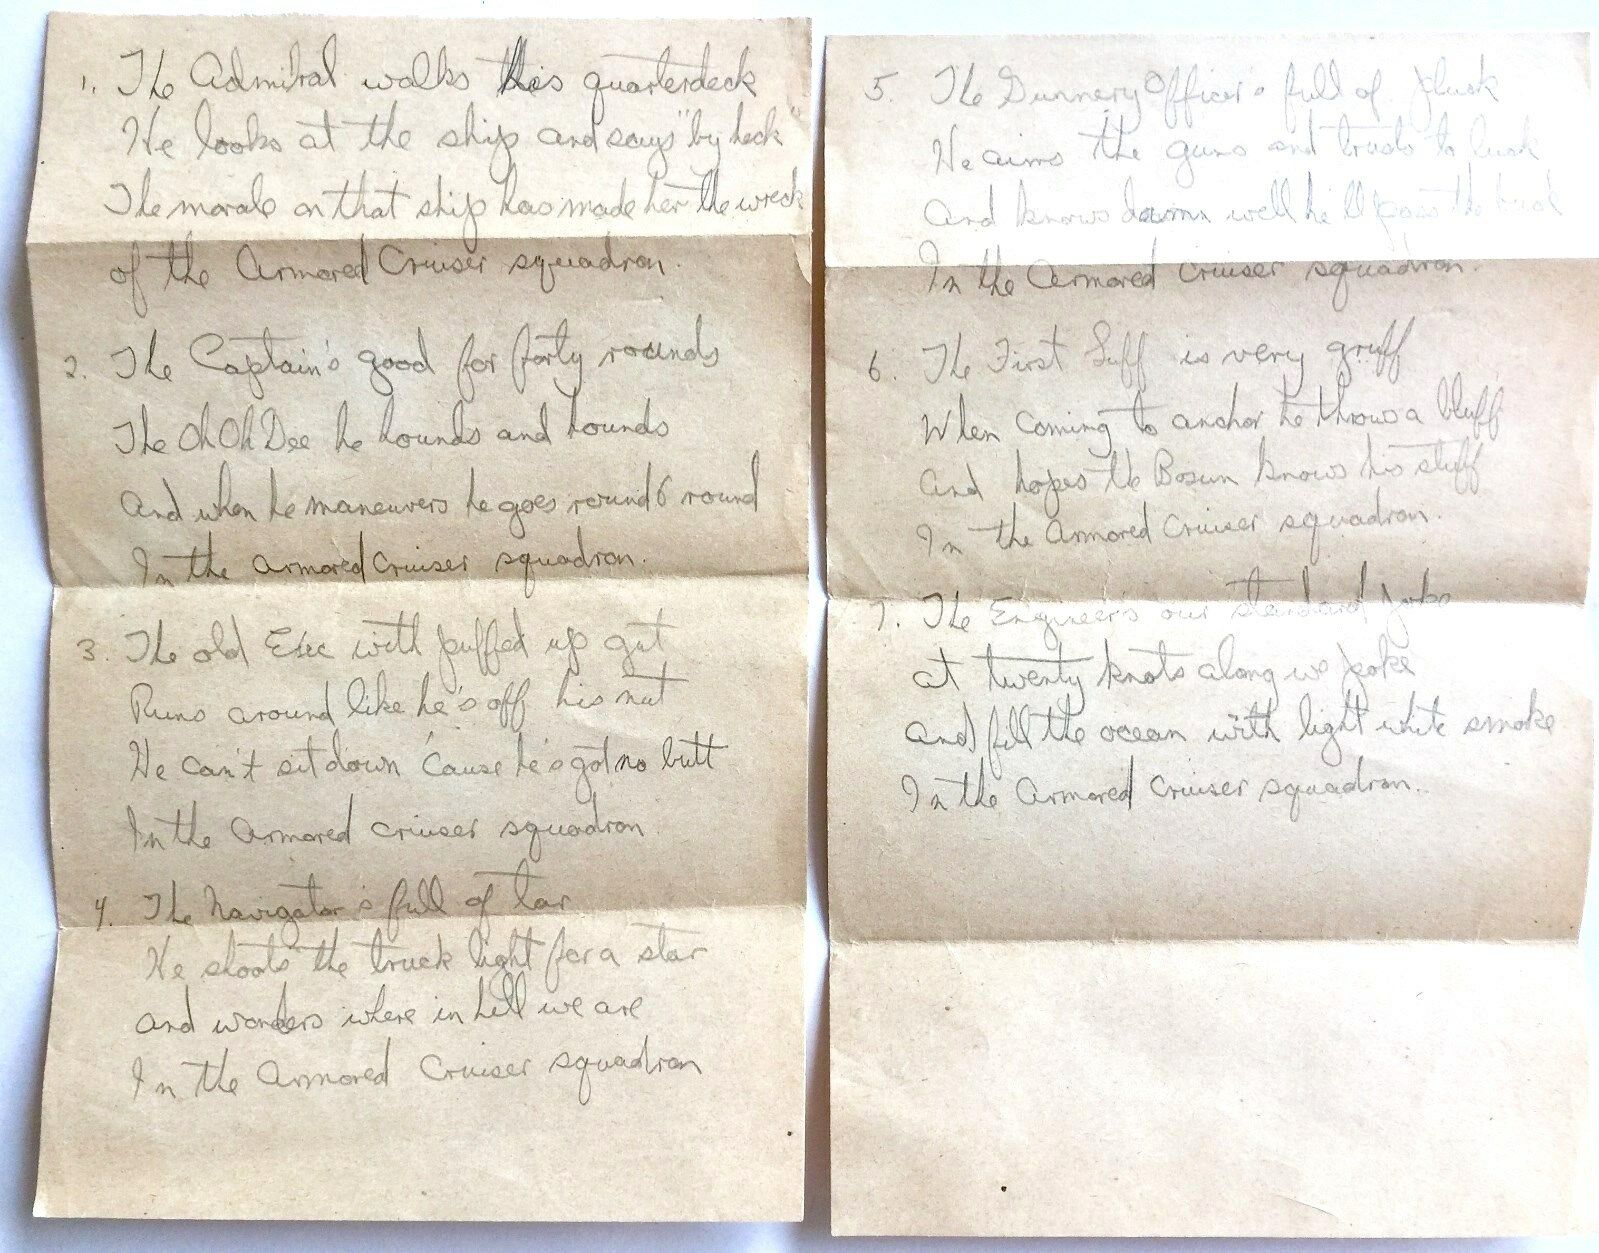 1. The Admiral walks this quarterdeck
He looks at the ship and says "by heck"
The morale on that ship has made her the wreck
of the Armored Cruiser squadron.
2. The Captain's good for forty rounds
The Oh Oh Dee he hounds and hounds
And when he maneuvers he goes round & round
In the Armored Cruiser squadron.
3. The old Exec with puffed up gut
Runs around like he's off his nut
He can't sit down 'cause he's got no butt
In the Armored Cruiser squadron
4. The Navigator's full of tar
He shoots the truck light for a star
And wonders where in hell we are
In the Armored Cruiser squadron
5. The Gunnery Officer's full of pluck
He aims the guns and trusts to luck
And knows damn well he'll pass the
In the Armored Cruiser squadron.
6. The First Luff is very gruff
When coming to anchor he throws a bluff
And hopes the Bosun knows his stuff
In the Armored Cruiser squadron.
7. The Engineer's our standard joke
At twenty knots along we poke
And fill the ocean with light white smoke
In the Armored Cruiser squadron.